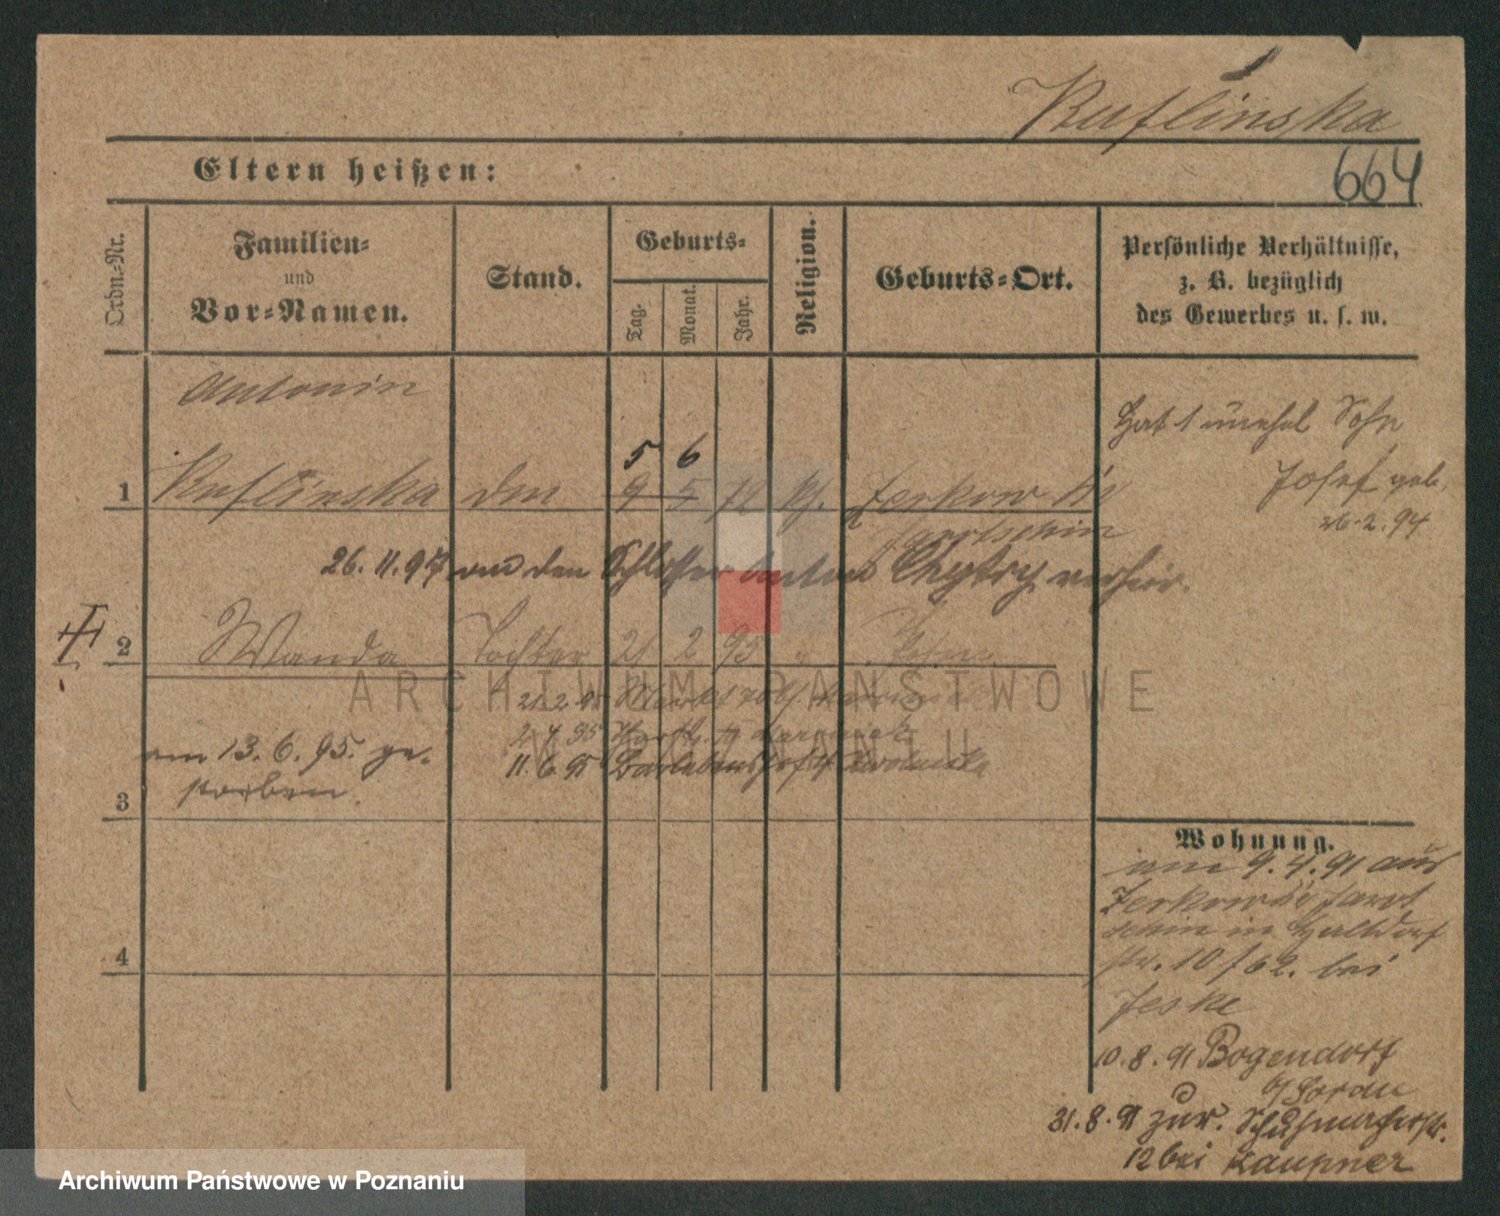 Kuflinska
Eltern heißen:
664
Ordn.-Nr.
Familien-
und
Vor-Namen.
Stand.
Geburts-
Tag.
Monat.
Jahr.
Religion.
Geburts-Ort.
Persönliche Verhältnisse,
z. B. bezüglich
des Gewerbes u. s. w.
Antonin
Hat 1 unehel Sohn
5 6
1 Kuflinska den 9 5 Zerkow
Josef geb.
26.2.94
26.11.97 den Schlosser Anton Chytry verheir.
2 Wanda Tochter 21 2 95
21.2.95
2.4.95
am 13.6.95. ge-
11.6.95
storben.
3
Wohnung.
am 9.4.91 aus
Zerkow
schin in Halbdorf
str. 10 / 62. bei
Jeske
4
10.8.91 Bogendorf
b/ Sorau
31.8.91 zur. Schuhmacherstr.
12 bei Kaupner
ARCHIWUM PAŃSTWOWE
W POZNANIU
Archiwum Państwowe w Poznaniu